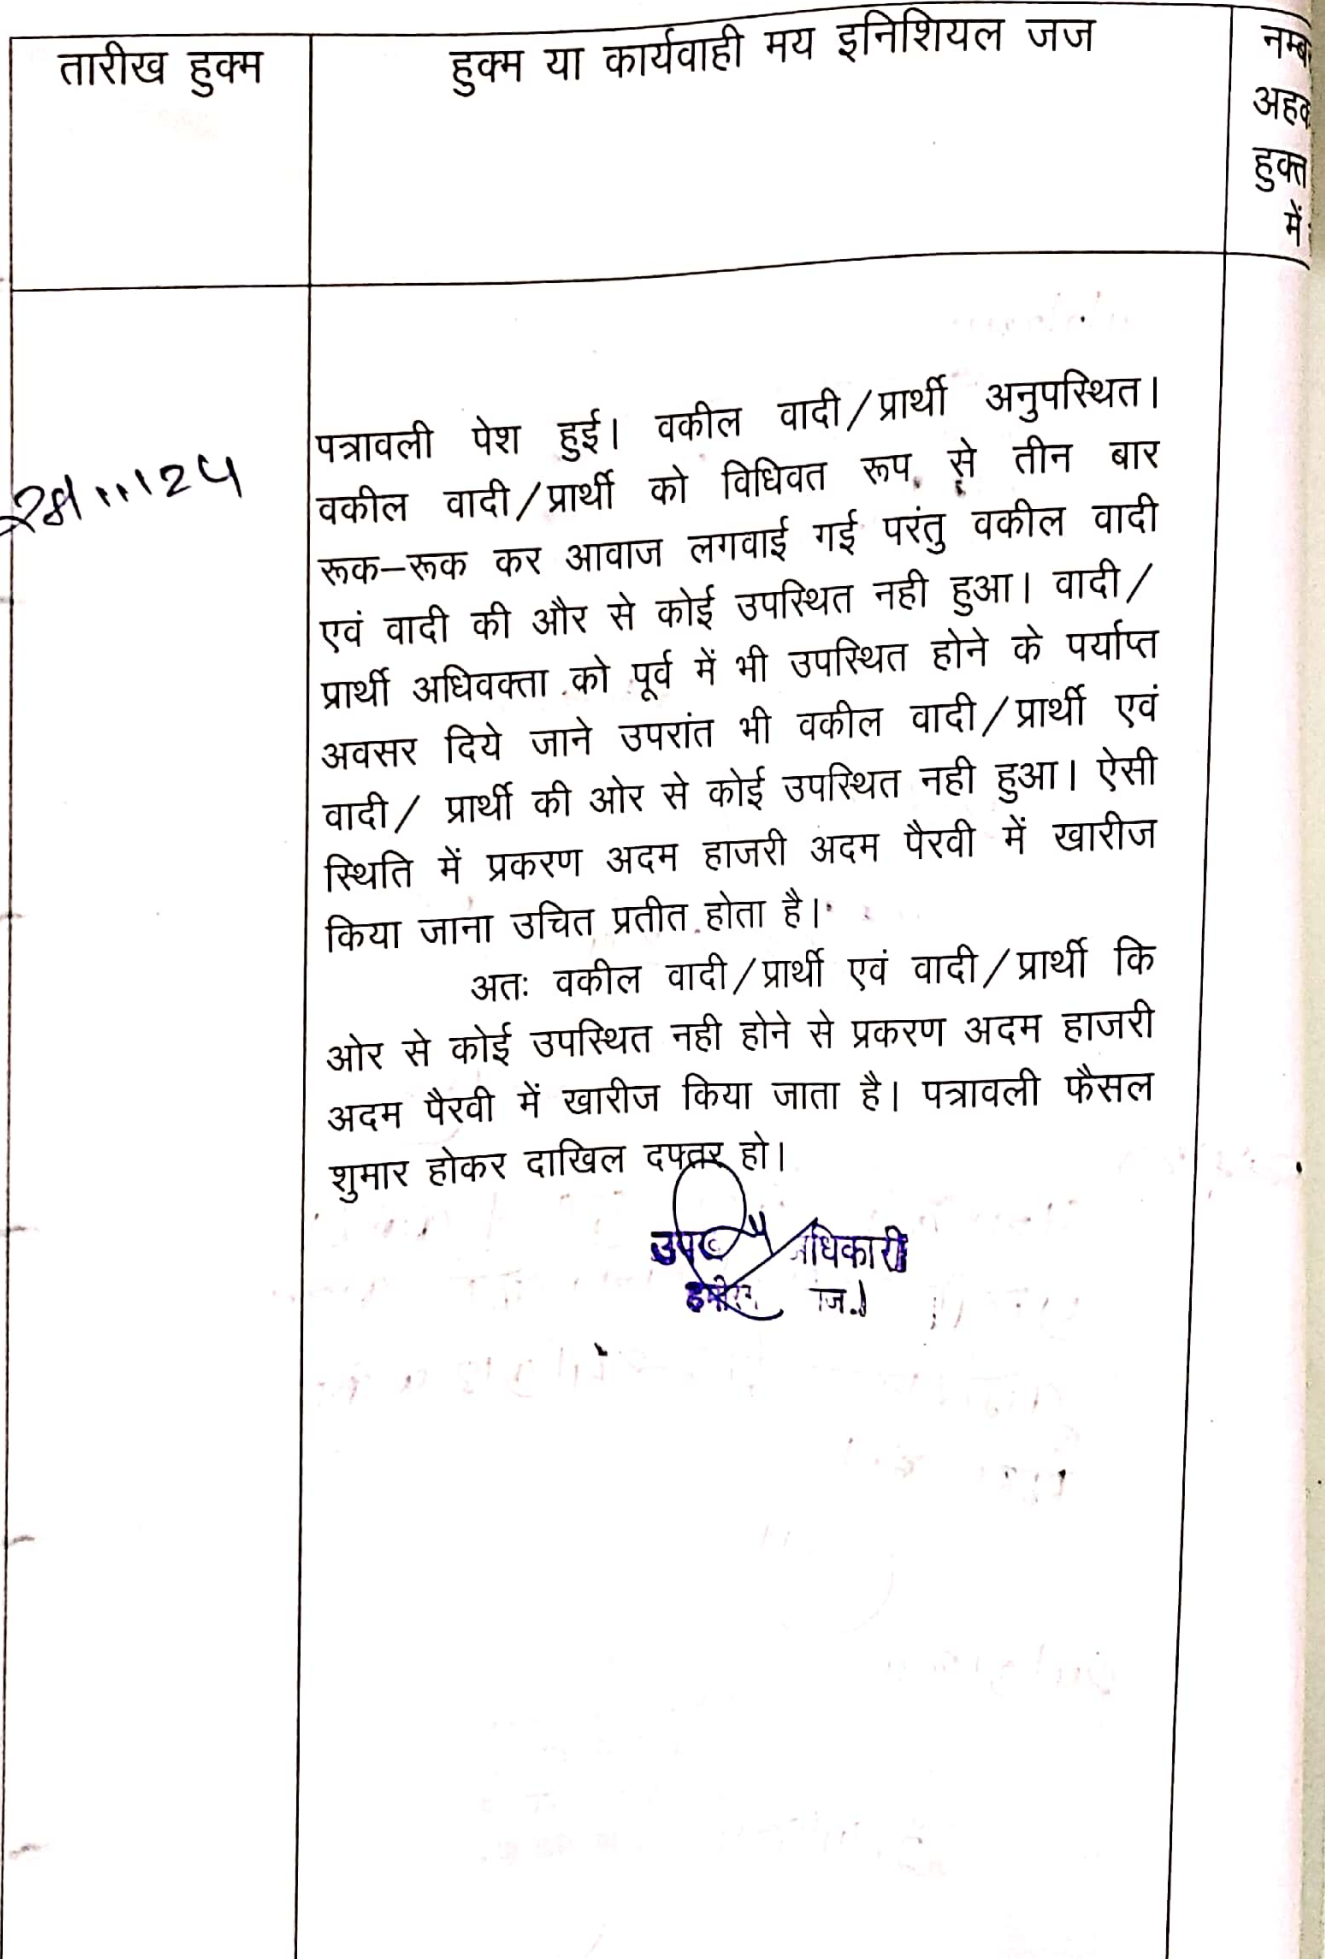 तारीख हुक्म
हुक्म या कार्यवाही मय इनिशियल जज
नम्ब
अहव
हुक्त
में
पत्रावली पेश हुई। वकील वादी/प्रार्थी अनुपस्थित।
वकील वादी/प्रार्थी को विधिवत रूप से तीन बार
रूक–रूक कर आवाज लगवाई गई परंतु वकील वादी
एवं वादी की और से कोई उपस्थित नही हुआ। वादी/
प्रार्थी अधिवक्ता को पूर्व में भी उपस्थित होने के पर्याप्त
अवसर दिये जाने उपरांत भी वकील वादी/प्रार्थी एवं
वादी/ प्रार्थी की ओर से कोई उपस्थित नही हुआ। ऐसी
स्थिति में प्रकरण अदम हाजरी अदम पैरवी में खारीज
किया जाना उचित प्रतीत होता है।
अतः वकील वादी/प्रार्थी एवं वादी/प्रार्थी कि
ओर से कोई उपस्थित नही होने से प्रकरण अदम हाजरी
अदम पैरवी में खारीज किया जाता है। पत्रावली फैसल
शुमार होकर दाखिल दफ्तर हो।